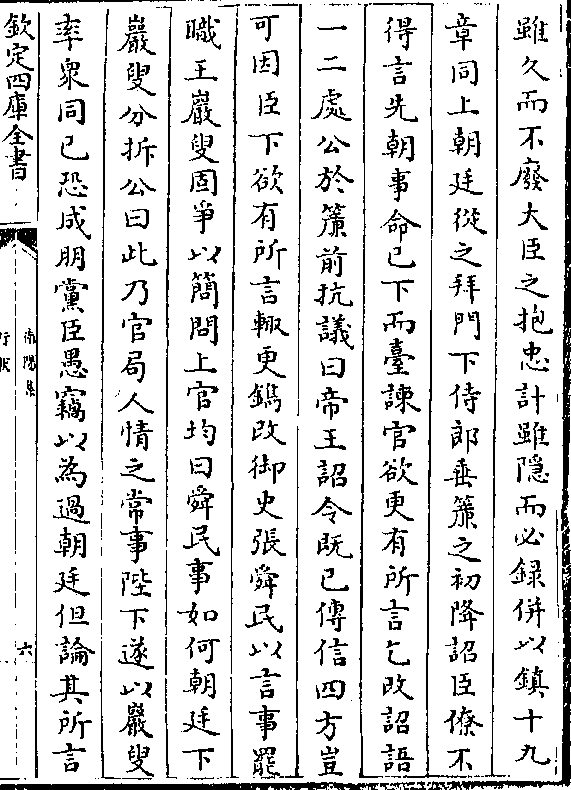 雖久而不廢大臣之抱忠計雖隱而必録併以鎮十九
章同上朝廷從之拜門下侍郎垂簾之初降詔臣僚不
得言先朝事命已下而臺諫官欲更有所言乞改詔語
一二處公於簾前抗議曰帝王詔令既已傳信四方豈
可因臣下欲有所言輙更鐫改御史張舜民以言事罷
職王巖叟固爭以簡問上官均曰舜民事如何朝廷下
巖叟分拆公曰此乃官局人情之常事陛下遂以巖叟
率衆同已恐成朋黨臣愚竊以為過朝廷但論其所言
欽定四庫全書
南陽集
行狀
六